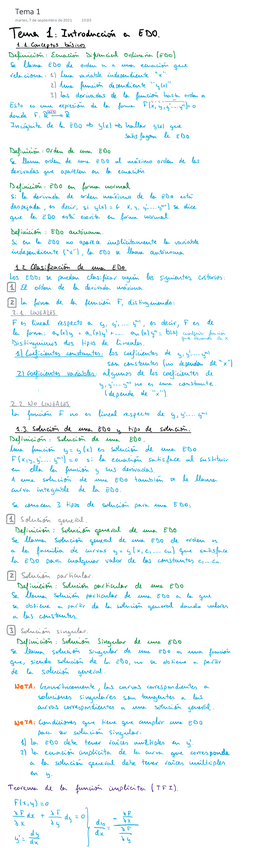 Tema 1
martes, 7 de septiembre de 2021
Tema 1: Introducción a EDO.
1.1 Conceptos básicos
Definición: Ecuación Diferencial Ordinaria (EDO)
Se llama EDO de orden n a una ecuación que
relaciona: 1) Una variable independiente "x"
2) Una función dependiente "y(x)"
3) Las derivadas de la función hasta orden n
Esto es una expresión de la forma F(x, y, y', ... yⁿ) = 0
donde F:
Incógnita de la EDO → y(x) → hallar y(x) que
satisfagan la EDO
Definición: Orden de una EDO
Se llama orden de una EDO al máximo orden de las
derivadas que aparecen en la ecuación
Definición: EDO en forma normal
Si la derivada de orden máximo de la EDO está
despejada, es decir, si se dice
que la EDO está escrita en forma normal
Definición: EDO autónoma
Si en la EDO no aparece explícitamente la variable
independiente ("x"), la EDO se llama autónoma
1.2 Clasificación de una EDO
Las EDOs se pueden clasificar según los siguientes criterios:
1 El orden de la derivada máxima
2 La forma de la función F, distinguiendo:
2.1. LINEALES
F es lineal respecto a y, y', ... yⁿ, es decir, F es de
la forma:
Distinguimos dos tipos de lineales.
1) Coeficientes constantes: los coeficientes de y, y', ... yⁿ
son constantes (no dependen de "x")
2) Coeficientes variables: algunos de los coeficientes de
y, y', ... yⁿ no es una constante
(depende de "x")
2.2. NO LINEALES
La función F no es lineal respecto de y, y', ... yⁿ
1.3 Solución de una EDO y tipo de solución.
Definición: Solución de una EDO.
Una función y = y(x) es solución de una EDO
F(x, y, y', ... yⁿ) = 0 si la ecuación satisface al sustituir
en ella la función y sus derivadas
A una solución de una EDO también se le llama
curva integral de la EDO.
Se conocen 3 tipos de solución para una EDO.
1 Solución general.
Definición: Solución general de una EDO
Se llama solución general de una EDO de orden n
a la familia de curvas y = y(x, c₁, ... cₙ) que satisface
la EDO para cualquier valor de las constantes c₁ ... cₙ
2 Solución particular
Definición: Solución particular de una EDO
Se llama solución particular de una EDO a la que
se obtiene a partir de la solución general dando valores
a las constantes.
3 Solución singular.
Definición: Solución Singular de una EDO
Se llama solución singular de una EDO a una función
que, siendo solución de la EDO, no se obtiene a partir
de la solución general.
NOTA: Geométricamente, las curvas correspondientes a
soluciones singulares son tangentes a las
curvas correspondientes a una solución general.
NOTA: Condiciones que tiene que cumplir una EDO
para ser solución singular.
1) La EDO debe tener raíces múltiples en y'.
2) La ecuación implícita de la curva que corresponde
a la solución general debe tener raíces múltiples
en y.
Teorema de la función implícita (T.F.I).
F(x,y) = 0
∂F/∂x dx + ∂F/∂y dy = 0
y' = dy/dx
dy/dx = - (∂F/∂x)/(∂F/∂y)